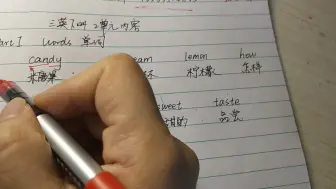 三英下册 2单元内容
Part 1 words 单词
candy eam lemon how
柠檬 怎样
sweet taste
甜的 品尝